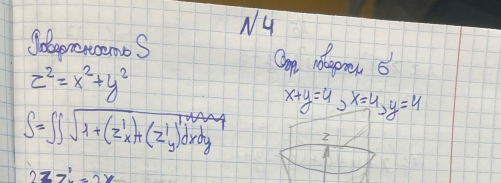 N4
Поверхность S
z² = x² + y²
S = ∬ √1 + (z'x) + (z'y)' dxdy
2z z'x = 2x
Огр поверхн б
x+y=4, x=4, y=4
z